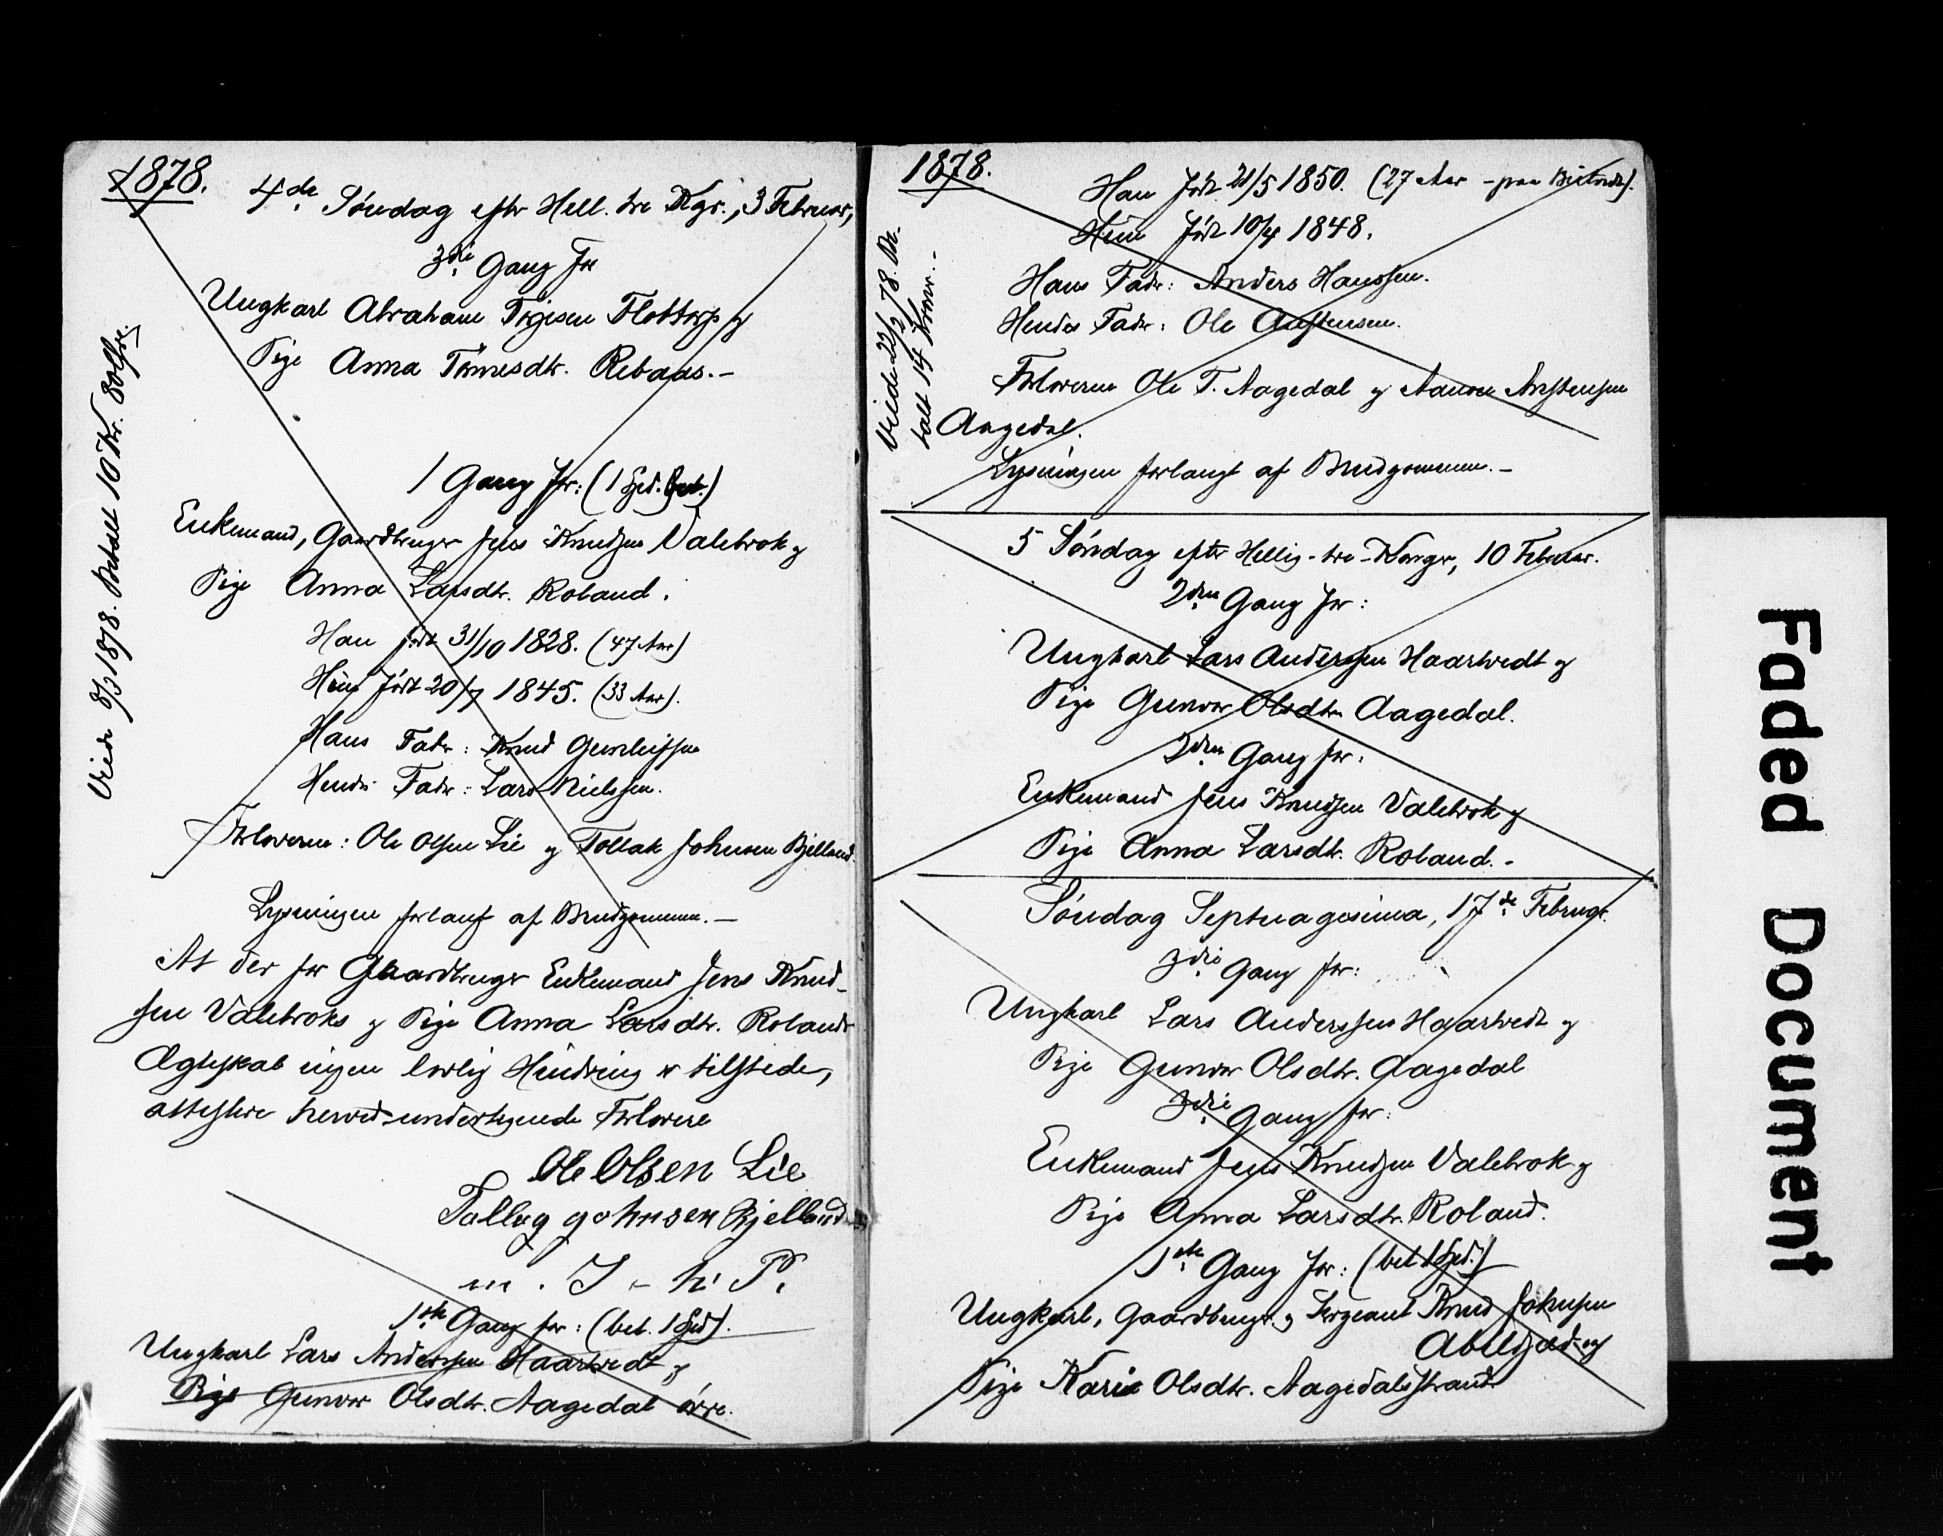 1878.
4de Søndag efter Hell. tre Kgr., 3 Februar,
3die Gang for
Ungkarl Abraham Tørjesen Flottorp og
Pige Anna Tørresdtr. Rebaas.-
Viede 8/3 1878. Betalt 10 Kr.
1 Gang for: (1 Spd. bet.)
Enkemand, Gaardbruger Jens Knudsen Valebrok og
Pige Anna Larsdtr. Roland.
Han født 31/10 1828. (47 Aar)
Hun født 20/7 1845. (33 Aar).
Hans Fader: Knud Gunleifsen
Hendes Fader: Lars Nielssen.
Forloverne: Ole Olsen Lie og Tollak Johnsen Bjelland.
Lysningen forlangt af Brudgommen.-
At der for Gaardbruger Enkemand Jens Knud-
sen Valebroks og Pige Anna Larsdtr. Rolands
Ægteskab ingen lovlig Hindring er tilstede,
attestere herved undertegnede Forlovere
Ole Olsen Lie
Tolleg Johnsen Bjelland
m. I - h. P.
1ste Gang for: (bet. 1 Spd).
Ungkarl Lars Anderssen Haartvedt og
Pige Gunvor Olsdtr. Aagedal øvre.
1878.
Han født 21/5 1850. (27 Aar
Hun født 10/4 1848.
Hans Fader: Anders Hanssen.
Hendes Fader: Ole Austensen.
Viede 22/3 78. Be-
talt 14 Kroner.-
Forloverne Ole T. Aagedal og Aanon Austensen
Aagedal.
Lysningen forlangt af Brudgommen.-
5 Søndag efter Hellig-tre-Konger, 10 Februar.
2den Gang for:
Ungkarl Lars Anderssen Haartvedt og
Pige Gunvor Olsdtr. Aagedal.
2den Gang for:
Enkemand Jens Knudsen Valebrok og
Pige Anna Larsdtr. Roland.-
Søndag Septuagesima, 17de Februar.
3die Gang for:
Ungkarl Lars Anderssen Haartvedt og
Pige Gunvor Olsdtr. Aagedal
3die Gang for:
Enkemand Jens Knudsen Valebrok og
Pige Anna Larsdtr. Roland.
1ste Gang for: (bet. 1 Spd.)
Ungkarl, Gaardbruger og Sergeant Knud Johnsen
Abelsæd og
Pige Karie Olsdtr. Aagedalsstrand
Faded Document